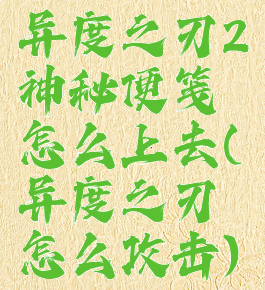 异度之刃2
神秘便笺
怎么上去(
异度之刃
怎么攻击)